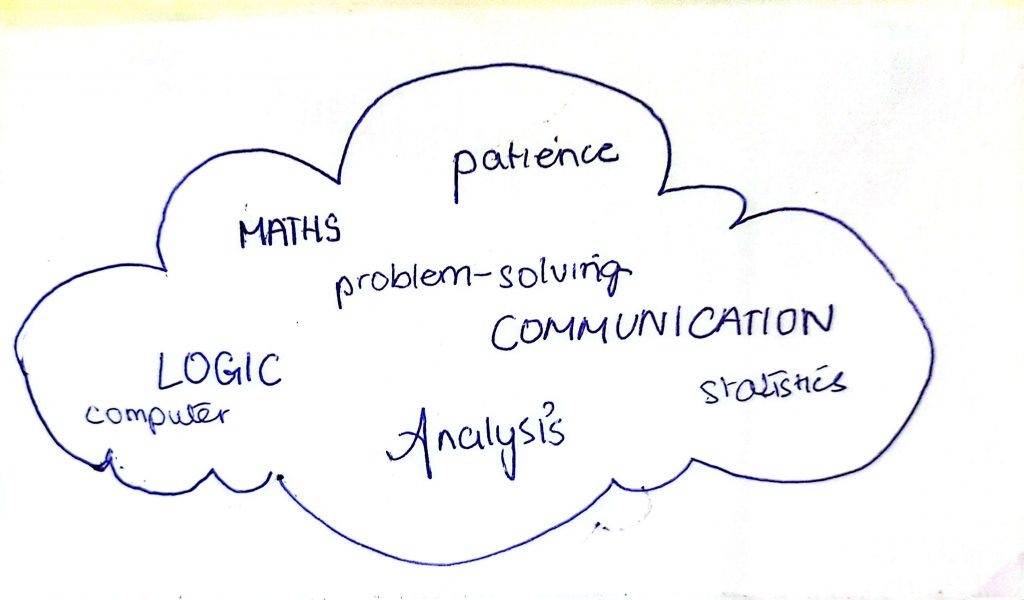 patience
MATHS
problem-solving
COMMUNICATION
LOGIC
statistics
computer
Analysis